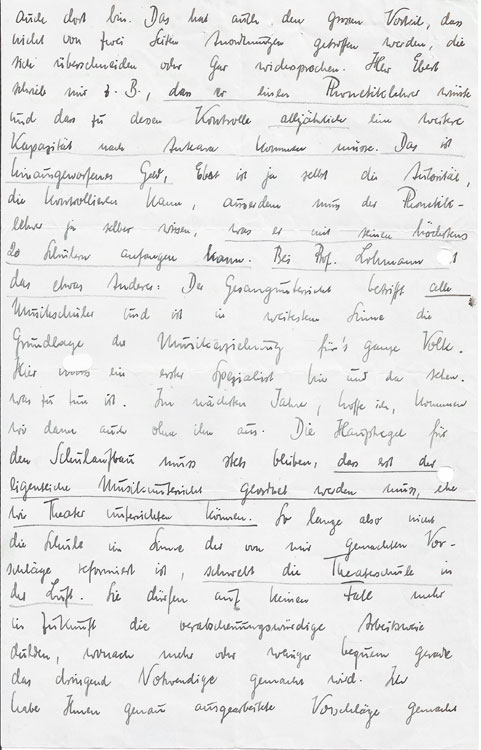 auch dort bin. Das hat auch den grossen Vorteil, dass
nicht von zwei Seiten Anordnungen getroffen werden, die
sich überschneiden oder gar widersprechen. Herr Ebert
schrieb mir z. B., dass er einen Phonetiklehrer wünscht
und das zu dessen Kontrolle alljährlich eine weitere
Kapazität nach Ankara kommen müsse. Das ist
hinausgeworfenes Geld, Ebert ist ja selbst die Autorität,
die kontrollieren kann, ausserdem muss der Phonetik-
lehrer ja selber wissen, was er mit seinen höchstens
20 Schülern anfangen kann. Bei Prof. Lohmann ist
das etwas Anderes: Der Gesangunterricht betrifft alle
Musikschüler und ist in weitestem Sinne die
Grundlage der Musikerziehung für's ganze Volk.
Hier muss ein erster Spezialist hin und da sehen,
was zu tun ist. Im nächsten Jahre, hoffe ich, kommen
wir dann auch ohne ihn aus. Die Hauptregel für
den Schulaufbau muss stets bleiben, dass erst der
eigentliche Musikunterricht geordnet werden muss, ehe
wir Theater unterrichten können. So lange also nicht
die Schule im Sinne der von mir gemachten Vor-
schläge reformiert ist, schwebt die Theaterschule in
der Luft. Sie dürfen auf keinen Fall mehr
in Zukunft die verabscheuungswürdige Arbeitsweise
dulden, wonach mehr oder weniger bequem gerade
das dringend Notwendige gemacht wird. Ich
habe Ihnen genau ausgearbeitete Vorschläge gemacht